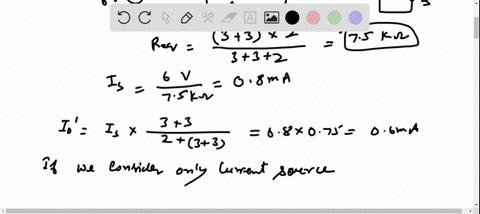 Req = (3+3) × 2 / 3+3+2 = 7.5 KΩ
Is = 6 V / 7.5 KΩ = 0.8 mA
Io' = Is × 3+3 / 2+(3+3) = 0.8 × 0.75 = 0.6 mA
If we consider only current source